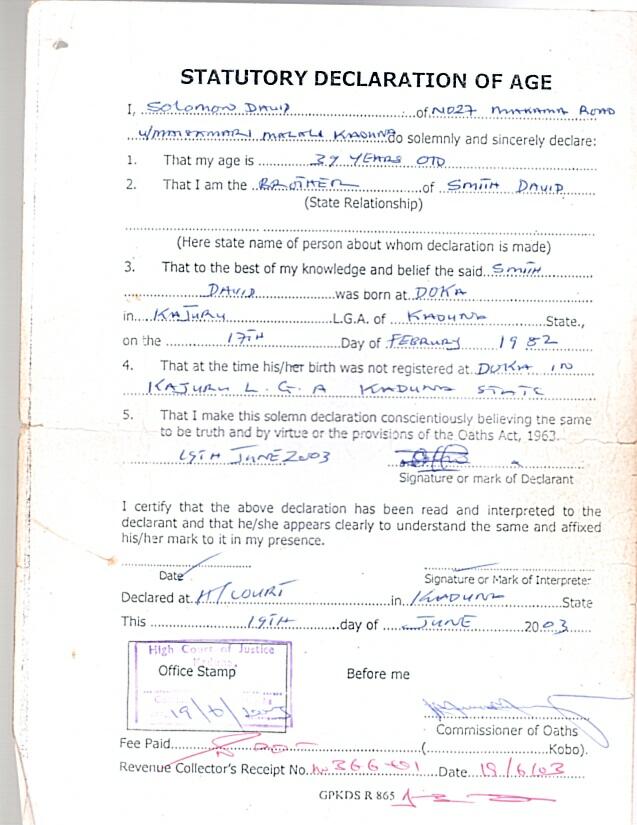 STATUTORY DECLARATION OF AGE
I, SOLOMON DAVID of NO27 MAKAMA ROAD
U/MAIKAMARI MALALI KADUNA do solemnly and sincerely declare:
1. That my age is 37 YEARS OTD
2. That I am the BROTHER of SMITH DAVID
(State Relationship)
(Here state name of person about whom declaration is made)
3. That to the best of my knowledge and belief the said SMITH
DAVID was born at DOKA
in KAJURU L.G.A. of KADUNA State.,
on the 17TH Day of FEBRURY 1982
4. That at the time his/her birth was not registered at DOKA IN
KAJURU L.G.A KADUNA STATE
5. That I make this solemn declaration conscientiously believing the same
to be truth and by virtue or the provisions of the Oaths Act, 1963.
19TH JUNE 2003
Signature or mark of Declarant
I certify that the above declaration has been read and interpreted to the
declarant and that he/she appears clearly to understand the same and affixed
his/her mark to it in my presence.
Date Signature or Mark of Interpreter
Declared at H/COURT in KADUNA State
This 19TH day of JUNE 2003
High Court of Justice
Kaduna
Office Stamp Before me
19/6/2003
Commissioner of Oaths
Fee Paid (Kobo).
Revenue Collector's Receipt No. Date 19/6/03
GPKDS R 865